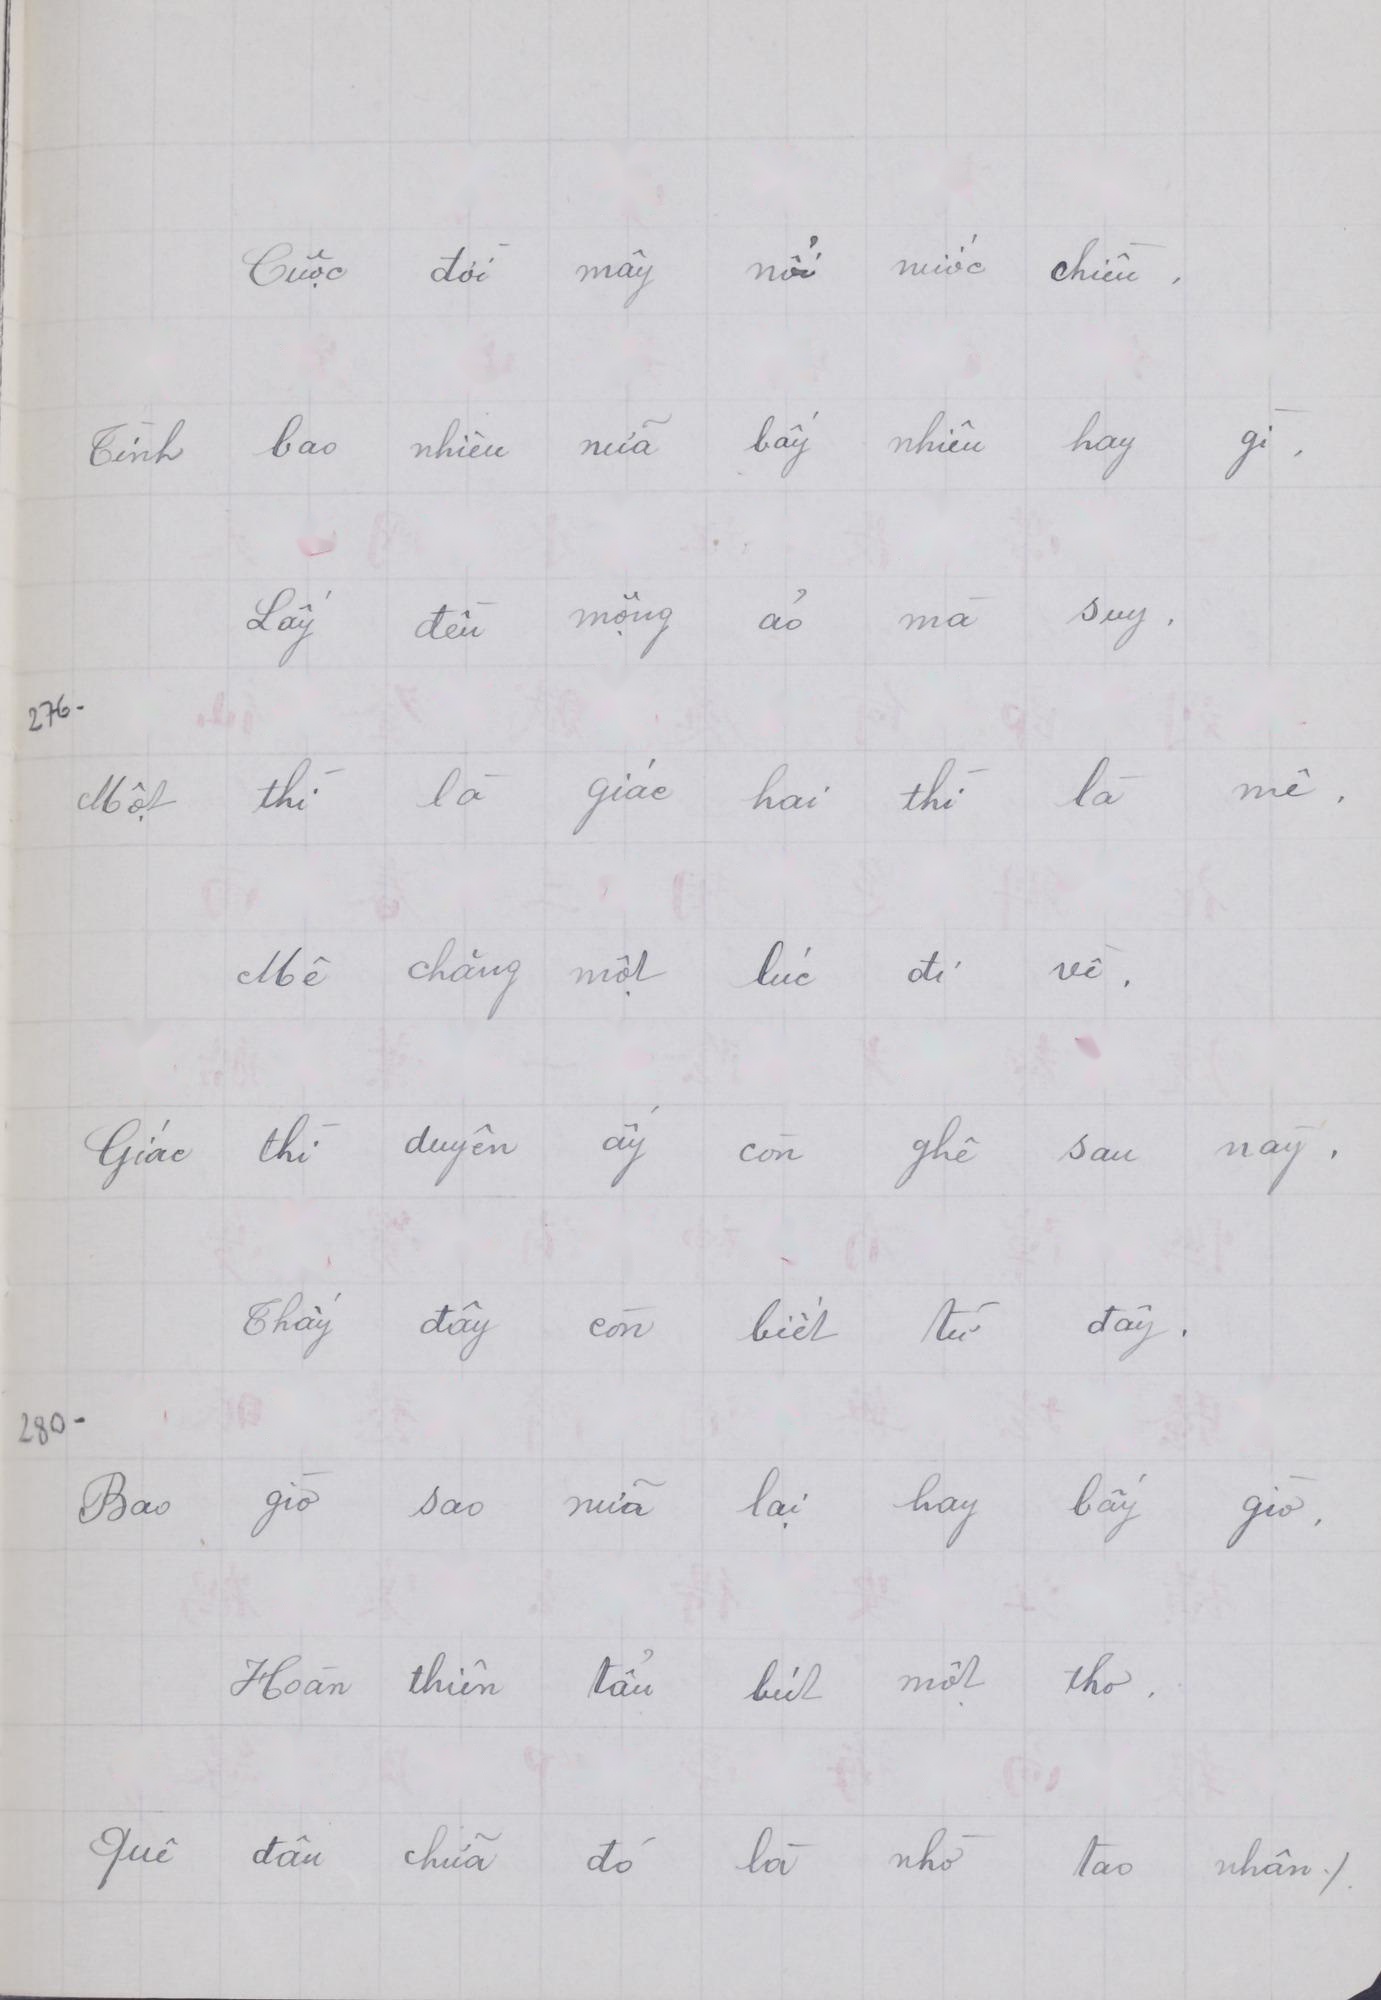 Cuộc đời mây nổi nước chiều.
Tính bao nhiêu nữa bấy nhiêu hay gì.
Lấy đều mộng ảo mà suy.
276-
Một thì là giác hai thì là mê.
Mê chăng một lúc đi về.
Giác thì duyên ấy còn ghê sau này.
Thấy đây còn biết từ đây.
280-
Bao giờ sao nữa lại hay bấy giờ.
Hoàn thiên tẩu bút một tho.
Quê đâu chữa đó là nhờ tao nhân./.